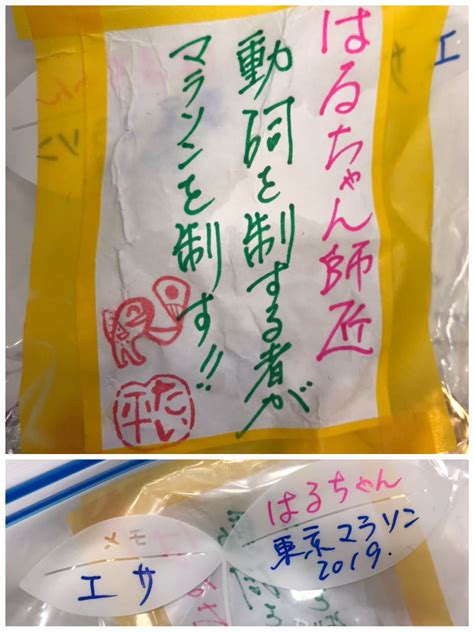 はるちゃん師匠
動詞を制する者が
マラソンを制す!!
たい平
エサ
メモ
エサ
はるちゃん
東京マラソン
2019.